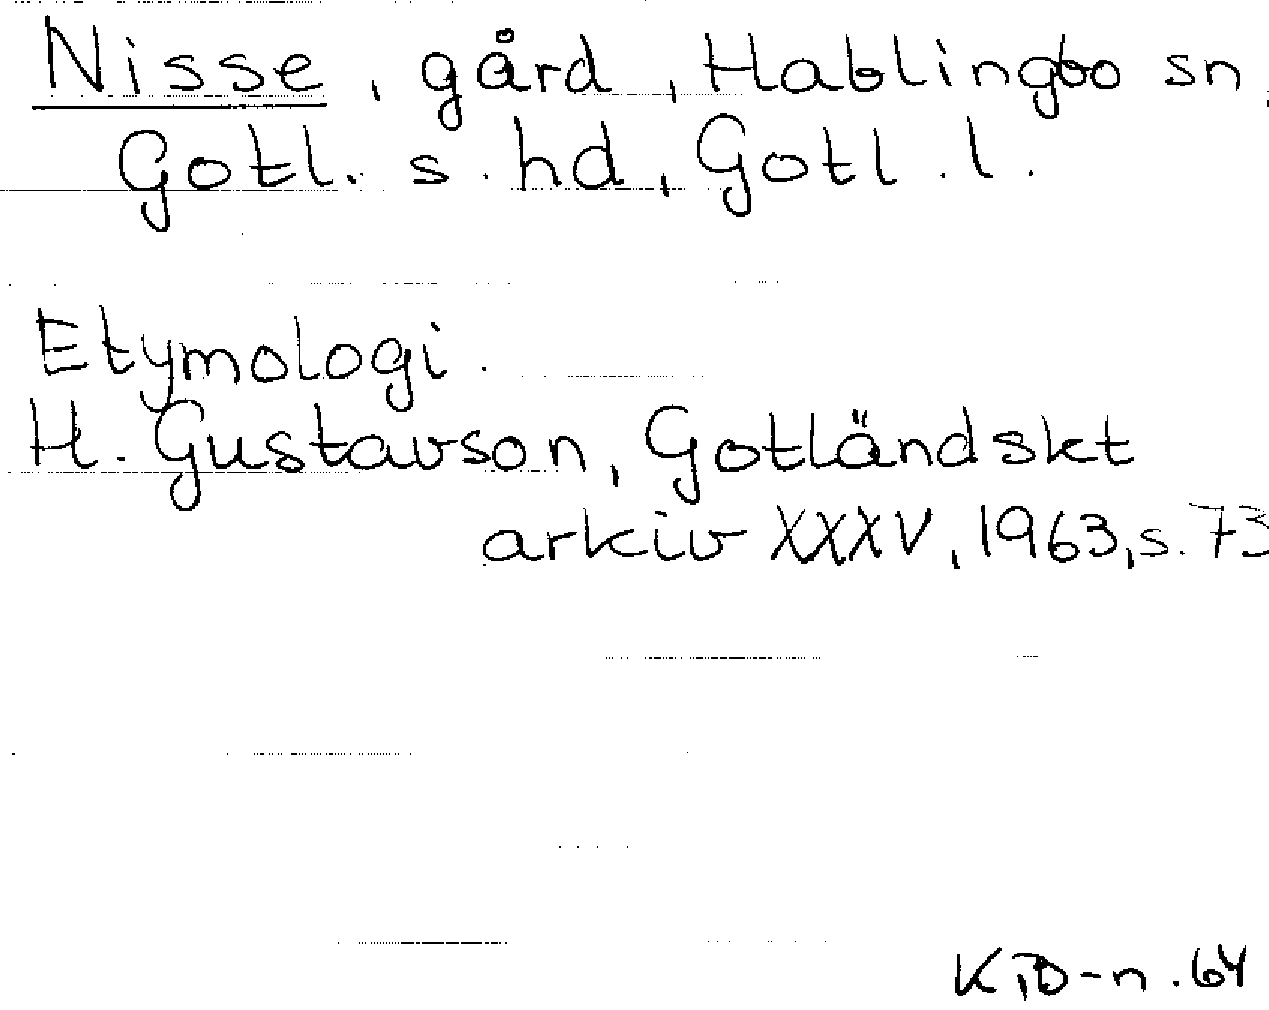 Nisse, gård, Hablingbo sn,
Gotl. s. hd, Gotl. l.
Etymologi.
H. Gustavson, Gotländskt
arkiv XXXV, 1963, s. 73